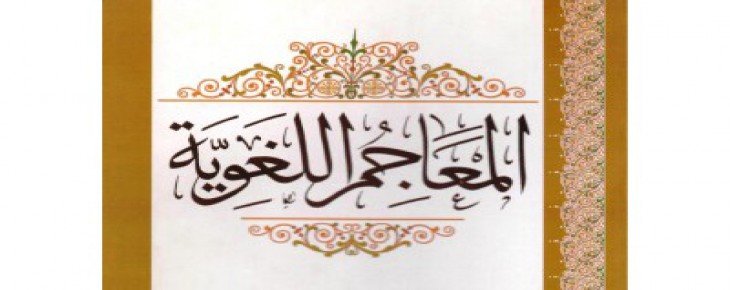 المعَاجِمُ اللغَوِيَّة